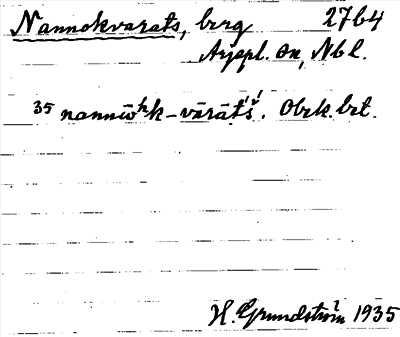 Nannokvarats, berg 2764
Arjepl. sn, Nbl.
35 nannōʰk-vārāt́š́. Obek. bet.
H. Grundström 1935